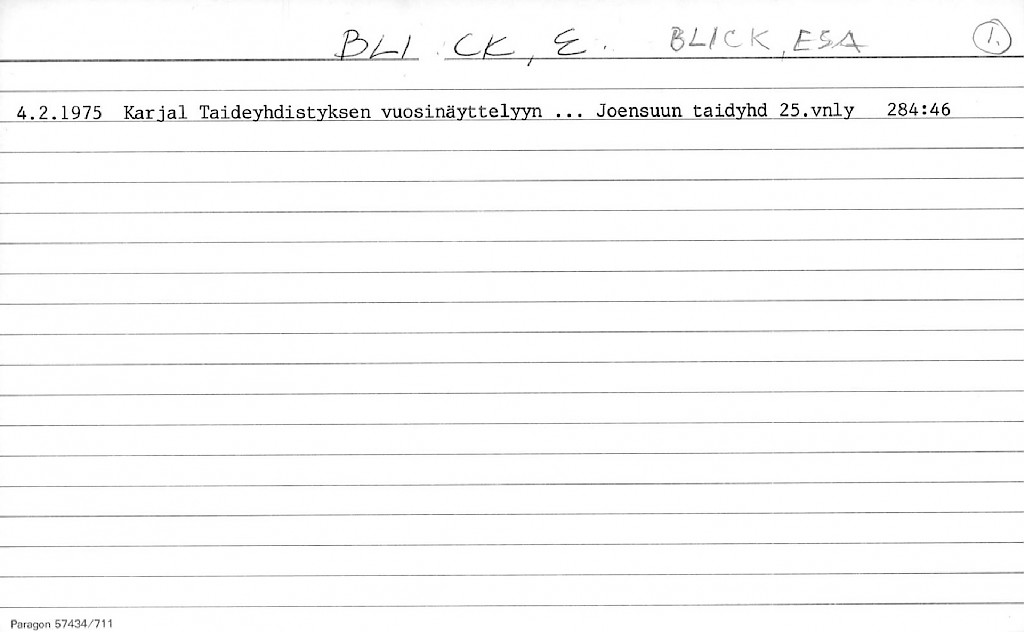 BLICK, E. BLICK, ESA 1.
4.2.1975 Karjal Taideyhdistyksen vuosinäyttelyyn ... Joensuun taidyhd 25.vnly 284:46
Paragon 57434/711